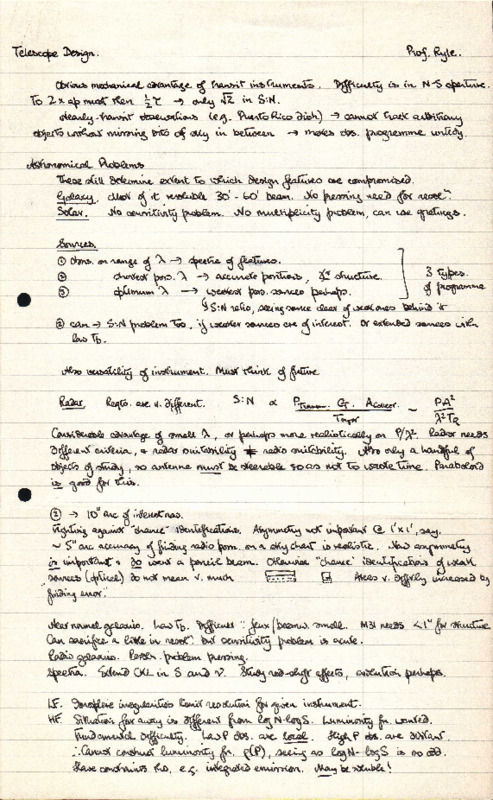 Telescope Design. Prof. Ryle.
Obvious mechanical advantage of transit instruments. Difficulty is in N-S aperture.
To 2 x ap must then ½ τ → only √2 in S:N.
Nearly-transit observations (e.g. Puerto Rico dish) → cannot track arbitrary
objects without missing bits of sky in between → makes obs. programme untidy.
Astronomical Problems
These still determine extent to which design features are compromised.
Galaxy. Most of it resoluble 30' - 60' beam. No pressing need for resol.ⁿ
Solar. No sensitivity problem. No multiplicity problem, can use gratings.
Sources
① Obns. on range of λ → spectra of features.
② shortest poss. λ → accurate positions, structure.
③ optimum λ → weakest poss. sources perhaps.
3 types of programme
S:N ratio, seeing some idea of weak ones behind it
② can → S:N problem too, if weaker sources are of interest. Or extended sources with
low Tb.
Also versatility of instrument. Must think of future
Radar Reqts. are v. different. S:N ∝ P Transm. G. A collector / T noise ~ PA² / λ²TR
Considerable advantage of small λ, or perhaps more realistically on P/λ². Radar needs
different criteria, & radar suitability ≠ radio suitability. Also only a handful of
objects of study, so antenna must be steerable so as not to waste time. Paraboloid
is good for this.
② → 10" arc of interest now.
Fighting against "chance" identifications. Asymmetry not important @ 1' x 1', say.
~ 5" arc accuracy of finding radio posn. on a sky chart is realistic. Now asymmetry
is important & do want a pencil beam. Otherwise "chance" identifications of weak
sources (optical) do not mean v. much Areas v. differently increased by
finding error.
Near normal galaxies. Low Tb. Difficult ∵ flux/beam v. small. M31 needs <1" for structure
Can sacrifice a little in resolⁿ. but sensitivity problem is acute.
Radio galaxies. Resoln problem pressing.
Spectra. Extend CKL in S and ν. Study red-shift effects, evolution perhaps.
LF. Ionosphere irregularities limit resolution for given instrument.
HF Situation far away is different from log N-log S. Luminosity fn. wanted.
Fundamental difficulty. Low P obs. are local. High P obs. are distant.
∴ Cannot construct luminosity fn. ρ(P), seeing as log N - log S is so odd.
Have constraints tho. e.g. integrated emission. May be soluble!